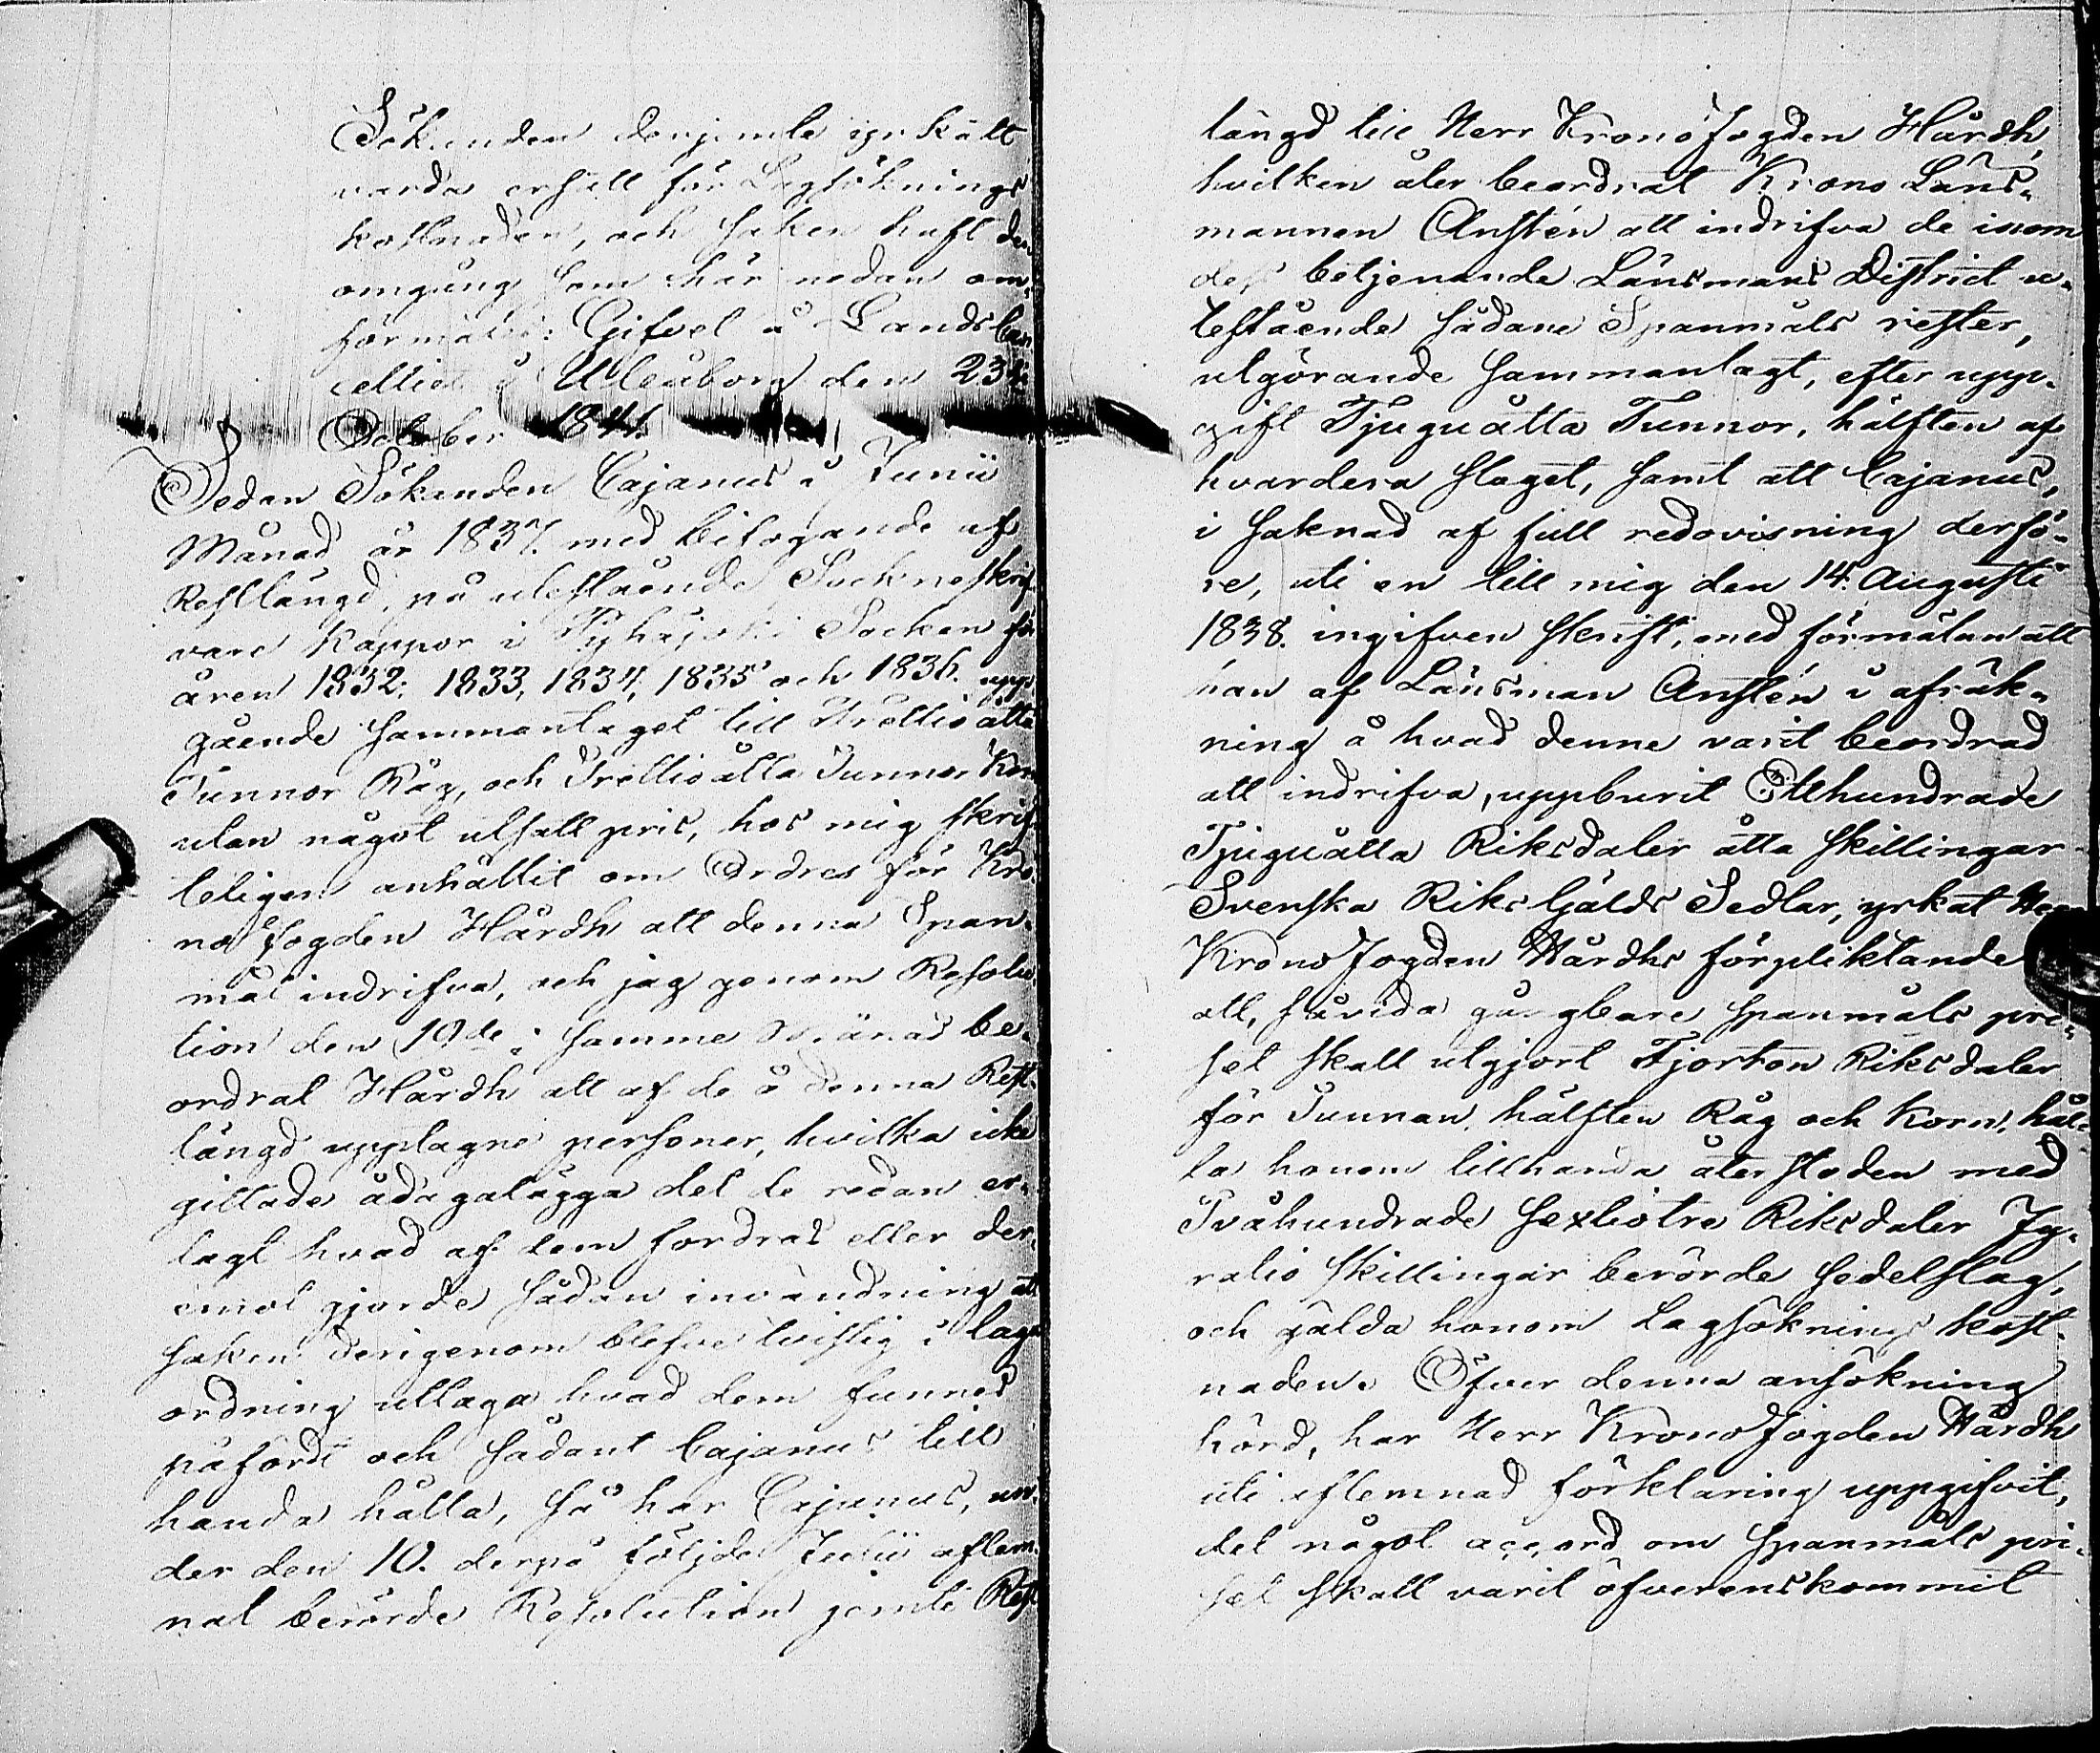 Sökanden derjemte yrkat
varda ersatt för Lagsöknings
kostnaden, och saken haft den
omgång som här nedan om-
förmäles: Gifvet å Landscan-
celliet i Uleåborg den 23de
October 1841.
Sedan Sökanden Cajanus i Junii
Månad år 1837. med bifogande af
Restlängd, på utestående Sockneskrif-
vare Kappor i Pyhäjoki Socken för
åren 1832, 1833, 1834, 1835 och 1836. upp-
gående sammantaget till Trettioåtta
Tunnor Råg, och Trettioåtta Tunnor Korn
utan något utsatt pris, hos mig skrif-
teligen anhållit om Ordres för Kro-
no Fogden Hårdh att denna Span-
mål indrifva, och jag genom Resolu-
tion den 19de i samma Månad be-
ordrat Hårdh att af de å denna Rest-
längd upptagne personer, hvilka icke
gittade ådagalägga det de redan er-
lagt hvad af dem fordras eller der-
emot gjorde sådan invändning att
saken derigenom blefve tvistig i laga
ordning uttaga hvad dem funnes
påfördt och sådant Cajanus till
handa hålla, så har Cajanus, un-
der den 10. derpå följde Julii aflem-
nat berörde Resolution jemte Rest-
längd till Herr Krono Fogden Hårdh,
hvilken åter beordrat Krono Läns-
mannen Anstén att indrifva de inom
dess betjenande Länsmans District u-
testående sådane Spanmåls rester,
utgörande sammanlagt, efter upp-
gift Tjuguåtta Tunnor, hälften af
hvardera slaget, samt att Cajanus,
i saknad af full redovisning derfö-
re, uti en till mig den 14. Augusti
1838. ingifven skrift, med förmälan att
han af Länsman Anstén i afräk-
ning å hvad denne varit beordrad
att indrifva, uppburit Etthundrade
Tjuguåtta Riksdaler åtta skillingar
Svenska Riksgälds Sedlar, yrkat Herr
Krono Fogden Hårdhs förpliktande
att, såvida gångbare spanmåls pri-
set skall utgjort Fjorton Riksdaler
för Tunnan, hälften Råg och Korn, hål-
la honom tillhanda återstoden med
Tvåhundrade sextiotre Riksdaler Fy-
ratio skillingar berörde sedelslag,
och gälda honom Lagsöknings kost-
naden. Öfver denna ansökning
hörd, har Herr Krono Fogden Hårdh
uti aflemnad förklaring uppgifvit,
det något accord om spanmåls pri-
set skall varit öfverenskommit